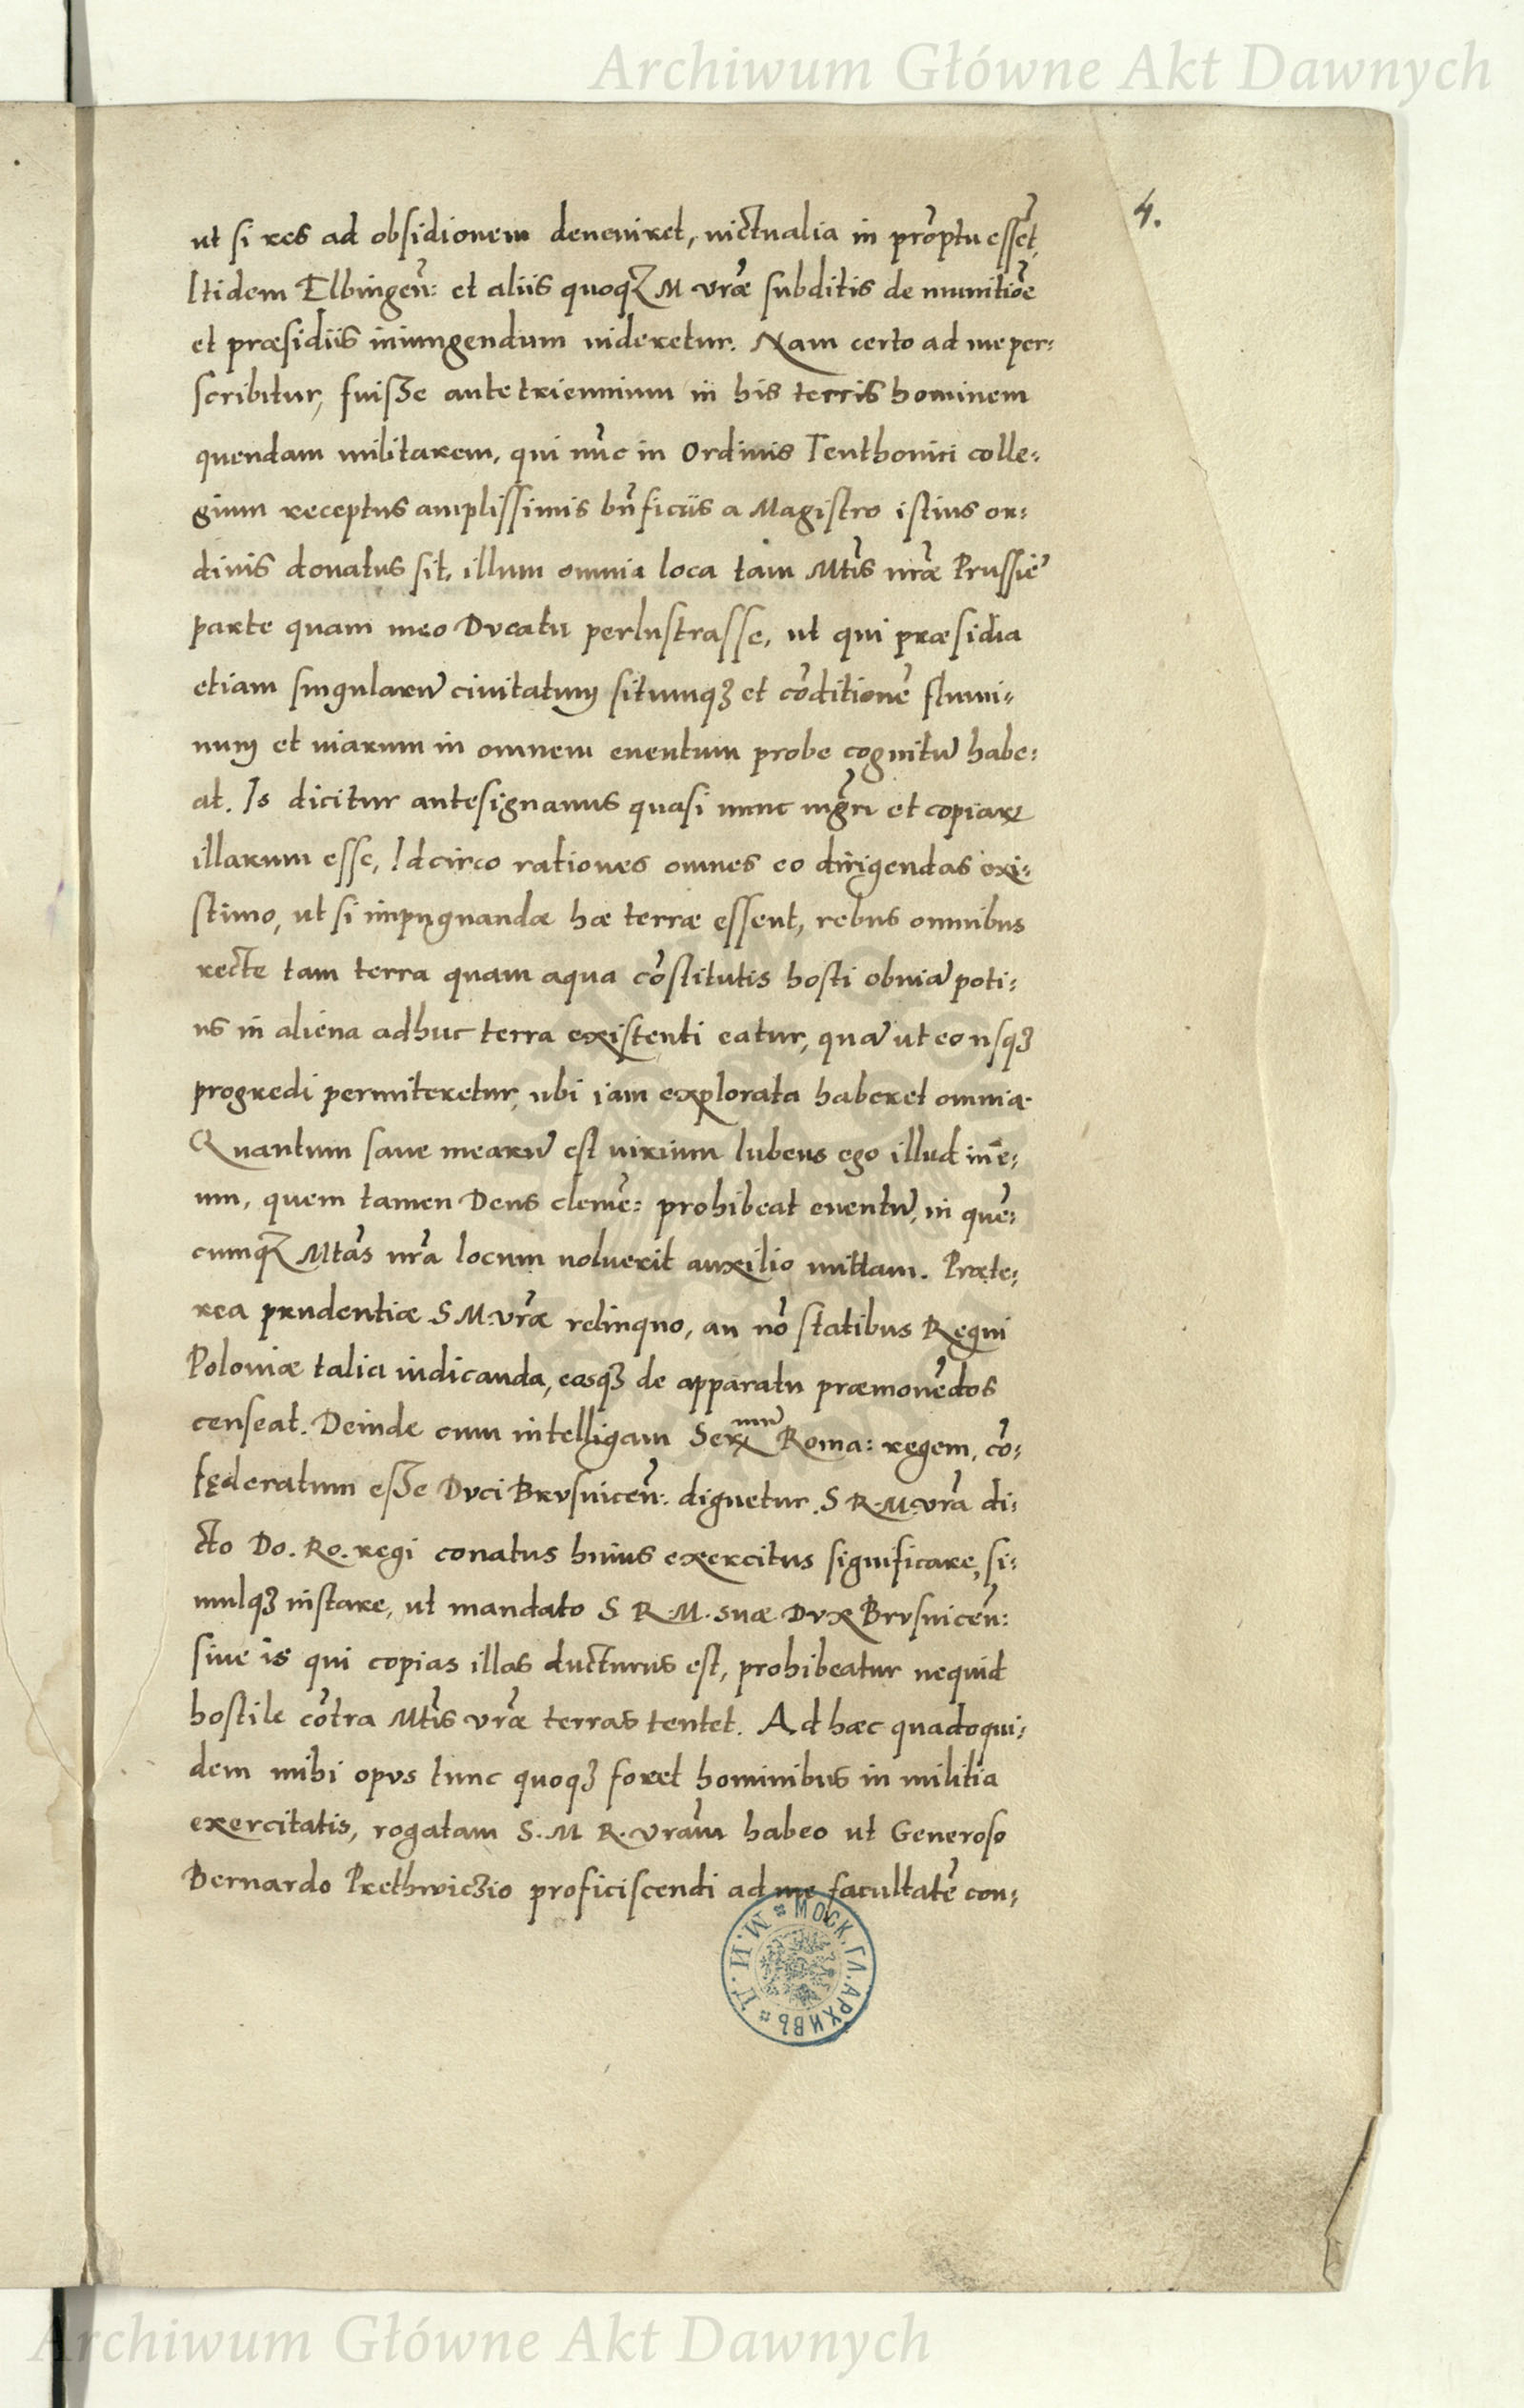 Archiwum Główne Akt Dawnych
4.
ut si res ad obsidionem deveniret, victualia in prōptu essēt,
Itidem Elbingen̄: et aliis quoq3 M vr̄æ subditis de munitiōe
et præsidiis iniungendum videretur. Nam certo ad me per:
scribitur, fuisse ante triennium in his terris hominem
quendam militarem, qui nūc in Ordinis Teuthonici colle:
gium receptus amplissimis bn̄ficiis a Magistro istius or:
dinis donatus sit, illum omnia loca tam Mtīs vr̄æ Prussiē
parte quam meo Ducatu perlustrasse, ut qui præsidia
etiam singularū civitatum situmq3 et cōditionē flumi:
num et viarum in omnem eventum probe cognitū habe:
at. Is dicitur antesignanus quasi nunc mgr̄i et copiarꝝ
illarum esse, Idcirco rationes omnes eo dirigendas exi:
stimo, ut si impugnandæ hæ terræ essent, rebus omnibus
recte tam terra quam aqua cōstitutis hosti obviā poti:
us in aliena adhuc terra existenti eatur, quā ut eo usq3
progredi permitteretur, ubi iam explorata haberet omnia.
Quantum sane mearū est virium lubens ego illud in ē:
um, quem tamen Deus clemē: prohibeat eventū, in quē:
cumq3 Mtās vr̄a locum voluerit auxilio mittam. Præte:
rea prudentiæ S M. vr̄æ relinquo, an nō statibus Regni
Poloniæ talia indicanda, easq3 de apparatu præmonēdos
censeat. Deinde cum intelligam Ser mū Roma: regem, cō:
fęderatum esse Duci Brusvicen̄: dignetur S R. M. vr̄a di:
cto Do. Ro. regi conatus huius exercitus significare, si:
mulq3 instare, ut mandato S R. M. suæ Dux Brusvicen̄:
sive is qui copias illas ducturus est, prohibeatur nequid
hostile cōtra Mtīs vr̄æ terras tentet. Ad hæc quadoqui:
dem mihi opus tunc quoq3 foret hominibus in militia
exercitatis, rogatam S. M R. vr̄am habeo ut Generoso
Bernardo Prethwiczio proficiscendi ad me facultatē con:
МОСК. ГЛ. АРХИВЪ М. И. Д.
Archiwum Główne Akt Dawnych